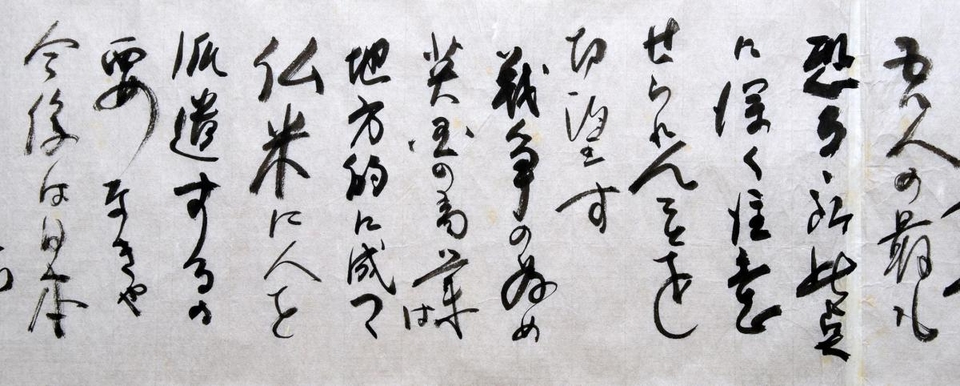 吾人の最も
恐る所此点
に深く注意
せられんことを
切望す
戦争の為め
英国の青藥は
地方的に成て
仏米に人を
派遣するの
要なきや
今後は日本